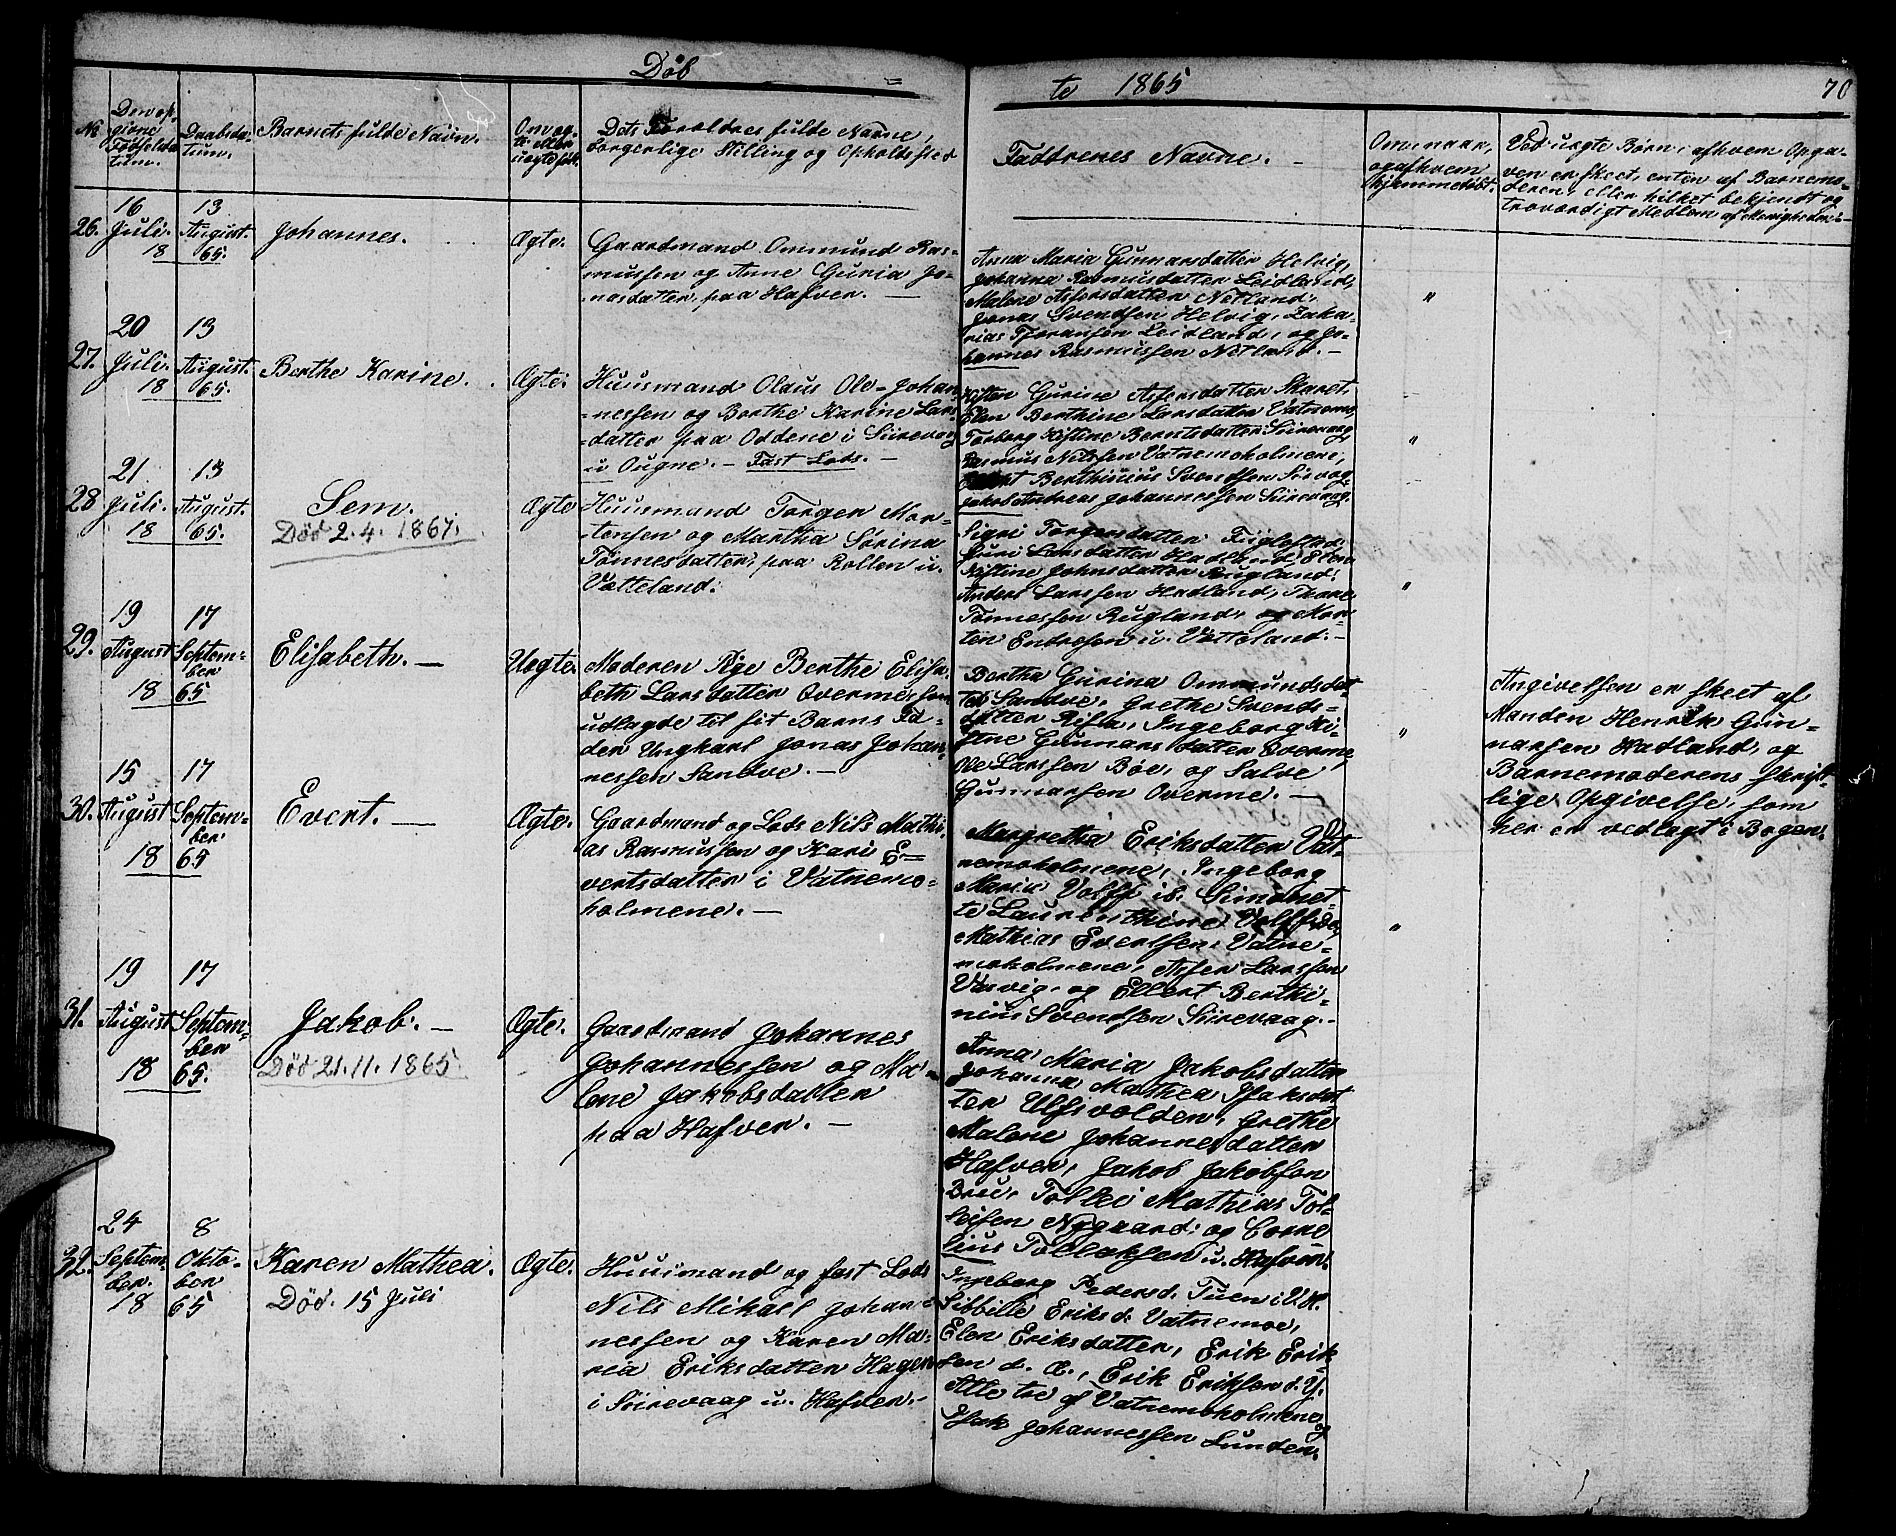 Døb
te 1865
70
No
Den op-
givne
Fødselsda
tum.
Daabsda-
tum.
Barnets fulde Navn.
Om æg-
te eller
uægte fød.
Dets Forældres fulde Navne,
borgerlige Stilling og Opholdssted
Faddrenes Navne. —
Om, naar,
og af hvem
hjemmedøbt.
Ved uægte Børn: af hvem Opga-
ven er skeet, enten af Barnemo-
deren, eller hilket bekjendt og
troværdigt Medlem af Menigheden:—
26.
16
Juli.
18
13
August.
65.
Johannes.
Ægte.
Gaardmand Ommund Ras-
mussen og Anne Guria Jo-
nasdatter, paa Hafver. —
Anna Maria Gunnarsdatter Helvig,
Johanna Rasmusdatter Leidland,
Malene Asforsdatter Netland,
Jonas Svendsen Helvig, Zaka-
rias Leidland, og Jo-
hannes Rasmussen Netland. —
"
27.
20
Juli.
18
13
August.
65.
Berthe Karine.
Ægte.
Huusmand Olaus Ole-Johan-
nessen og Berthe Karine Lars
datter paa Oddene i Siirevaag
u Ougne. — Fast Lods. —
Kisten Gurine Asforsdatter Skaret,
Elen Berthine Larsdatter Vatnemo,
Torborg Kistine Berntsdatter Siirevaag,
Rasmus Nilssen Vatnemoholmene,
Berthinius Svendsen Sirevaag
Jakob Andreas Johannessen Siirevaag.
"
28
21
Juli.
18
13
August.
65.
Sem.
Død 2.4. 1867.
Ægte
Huusmand Torger Mor-
tensen og Martha Sørina
Tønnesdatter, paa Rollen u.
Vatteland.
Sigri Torgersdatter Fuglested,
Guri Larsdatter Hadland, Elen
Kistine Johnsdatter Rugland,
Anders Larssen Hadland, Thore
Tønnessen Rugland, og Mor-
ten Endresen u. Vatteland. —
"
29.
19
August
18
17
Septem-
ber
65
Elisabeth. —
Uægte.
Moderen Pige Berthe Elisa-
beth Larsdatter Overme som
udlagde til sit Barns Fa-
der Ungkarl Jonas Johan-
nessen Sandve. —
Bertha Gurina Ommundsdat-
ter Sandve, Grethe Svends-
datter Risla, Ingeborg Ki-
stine Gunnarsdatter Overme,
Ove Larssen Bøe, og Salve
Gunnarsen Overme. —
"
Angivelsen er skeet af
Manden Henrik Gun-
narsen Hadland, og
Barnemoderens skrift-
lige Opgivelse, som
her er vedlagt i Bogen.
30.
15
August
18
17
Septem-
ber
65
Evert. —
Ægte.
Gaardmand og Lods Nils Mathi-
as Rasmussen og Kari E-
vertsdatter i Vatnemo-
holmene. —
Margretha Eriksdatter Vat-
nemoholmene, Ingeborg
Maria Volff ib. Simonet-
te Laurenthine Volff do,
Mathias Evertsen, Vatne-
moholmene, Asser Larssen
Varvig, og Ellert Berthi-
nius Svendsen Siirevaag. -
"
31.
19
August
18
17
Septem-
ber
65.
Jakob. —
Død 21.11. 1865.
Ægte.
Gaardmand Johannes
Johannessen og Ma-
lene Jakobsdatter
paa Hafver. —
Anna Maria Jakobsdatter
Johanna Mathea Isaksdat
ter Ulfsvolden, Grethe
Malene Johannesdatter
Hafver, Jakob Jakobson
Brue, Tollei Mathias Tol-
leifsen Nygaard, og Corne
lius Tollaksen u. Hafver.
32.
24
Septem-
ber.
18
8
Okto-
ber
65
Karen Mathea.
Død. 15 Juli
Ægte.
Huusmand og fast Lods
Nils Mikall Johan-
nessen og Karen Ma-
ria Eriksdatter Hagen
i Siirevaag u. Hafver. -
Ingeborg Pedersd. Tuen i V.H.
Sibbille Eriksd. Vatnemoe,
Elen Eriksdatter, Erik Erik-
sen d. Æ., Erik Eriksen d. Y.
Alle tre af Vatnemoholmene, og
Isak Johannessen Lunden.